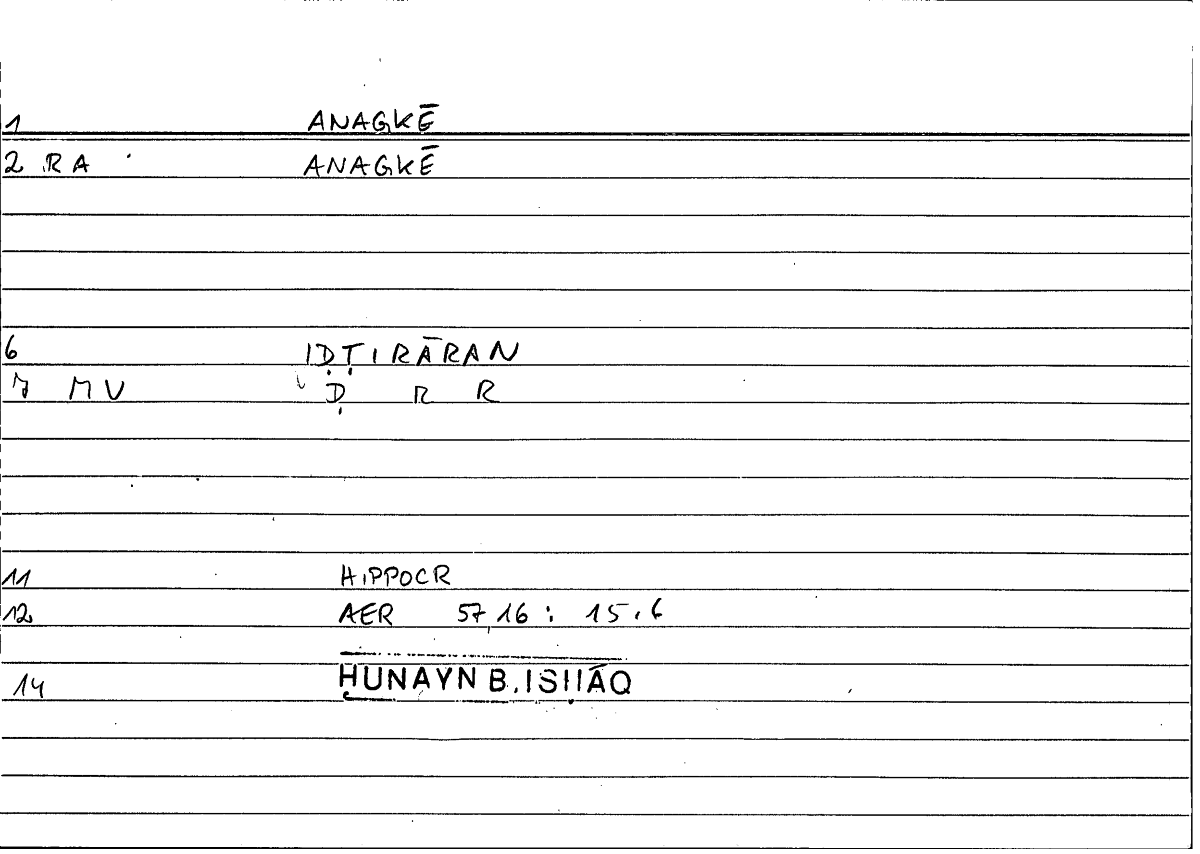 1 ANAGKĒ
2 RA ANAGKĒ
6 IḌṬIRĀRAN
7 MV Ḍ R R
11 HIPPOCR
12 AER 57,16 : 15,6
14 ḤUNAYN B. ISḤĀQ